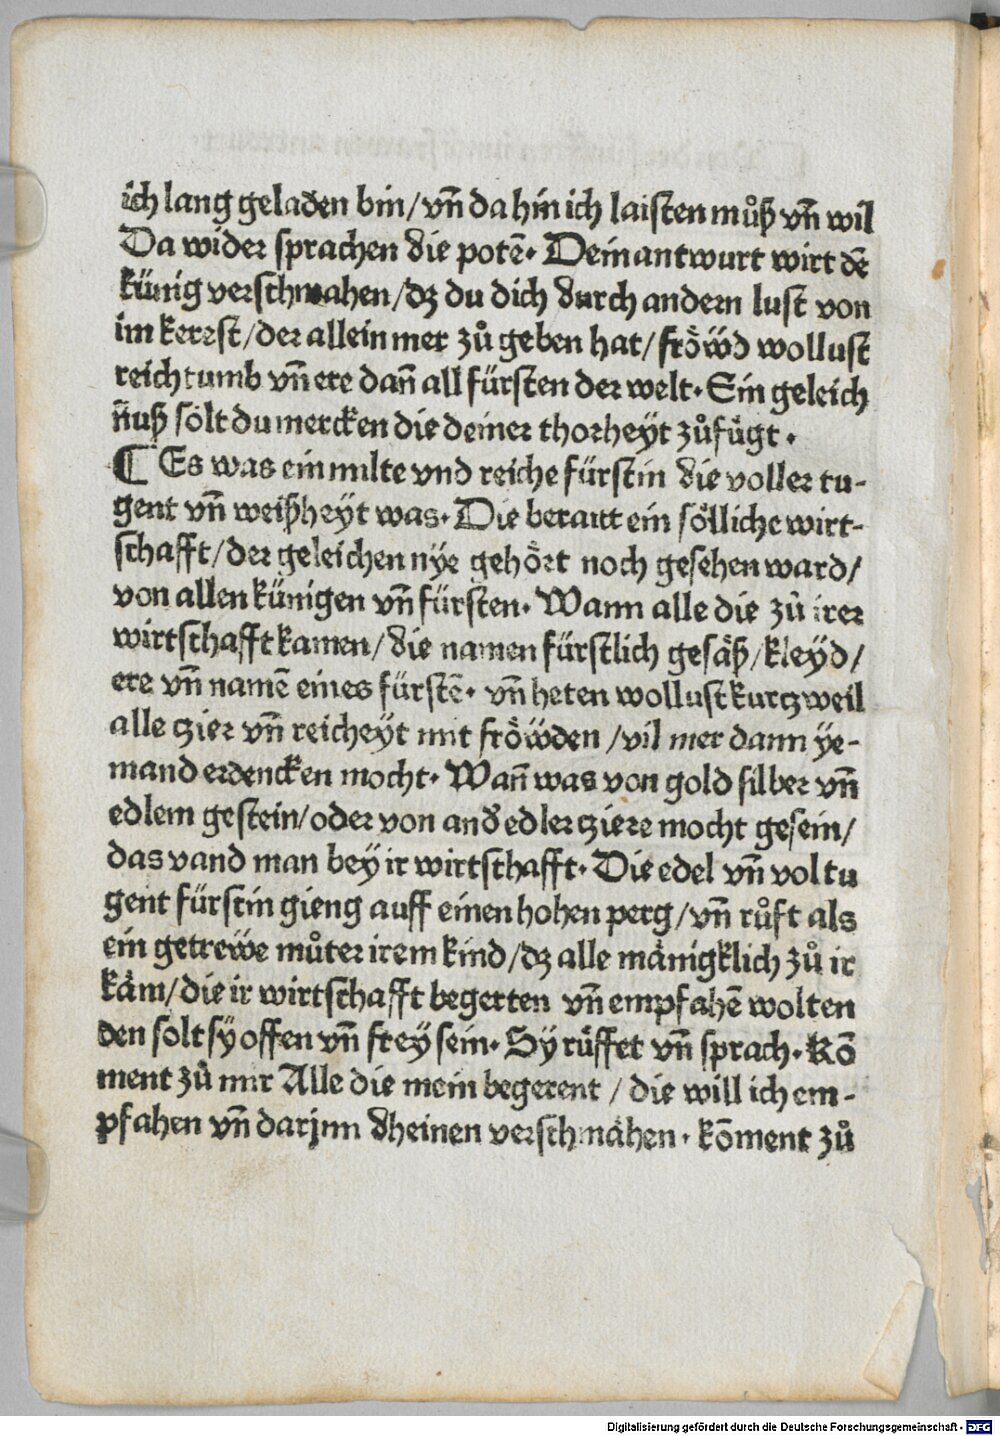 ich lang geladen bin/ vn̄ da hin ich laisten můß vn̄ wil
Da wider sprachen die potē. Dein antwurt wirt dē
künig verschmahen/ dz du dich durch andern lust von
im kerest/ der allein mer zů geben hat/ frö̈wd wollust
reichtumb vn̄ ere dan̄ all fürsten der welt. Ein geleich
n̈uß sölt du mercken die deiner thorheyt zůfügt.
¶ Es was ein milte vnd reiche fürstin die voller tu-
gent vn̄ weißheyt was. Die beraitt ein sölliche wirt-
schafft/ der geleichen nye gehört noch gesehen ward/
von allen künigen vn̄ fürsten. Wann alle die zů irer
wirtschafft kamen/ die namen fürstlich gesäß/ kleyd/
ere vn̄ namē eines fürstē. vn̄ heten wollust kurczweil
alle czier vn̄ reicheyt mit fröẅden/ vil mer dann ye-
mand erdencken mocht. Wan̄ was von gold silber vn̄
edlem gestein/ oder von and̄ edler cziere mocht gesein/
das vand man bey ir wirtschafft. Die edel vn̄ vol tu
gent fürstin gieng auff einen hohen perg/ vn̄ růft als
ein getreẅe můter irem kind/ dz alle mänigklich zů ir
käm/ die ir wirtschafft begerten vn̄ empfahē wolten
den solt sy offen vn̄ frey sein. Sy rüffet vn̄ sprach. Kō
ment zů mir Alle die mein begerent / die will ich em-
pfahen vn̄ darjnn dheinen verschmähen. kōment zů
Digitalisierung gefördert durch die Deutsche Forschungsgemeinschaft - DFG